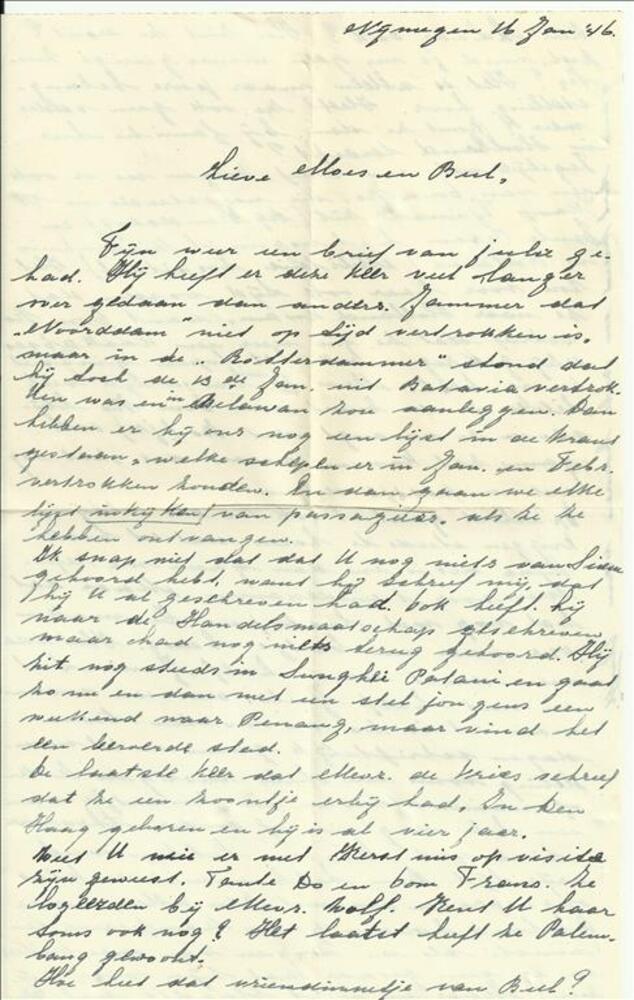 Nijmegen 16 Jan '46.
Lieve Moes en Bul,
Fijn weer een brief van jullie ge-
had. Hij heeft er deze keer veel langer
over gedaan dan anders. Jammer dat
„Noorddam" niet op tijd vertrokken is,
maar in de „Rotterdammer" stond dat
hij toch de 13 de Jan. uit Batavia vertrok-
ken was en in Belawan zou aanleggen. Dan
hebben er bij ons nog een lijst in de krant
gestaan, welke schepen er in Jan. en Febr.
vertrekken zouden. En dan gaan we elke
lijst inkijken! van passagiers, als ze ze
hebben ontvangen.
Ik snap niet dat dat U nog niets van
gehoord hebt, want hij schreef mij, dat
hij U al geschreven had. Ook heeft hij
naar de Handelsmaatschap geschreven
maar had nog niets terug gehoord. Hij
zit nog steeds in Sunghei Patani en gaat
zo nu en dan met een stel jongens een
weekend naar Penang, maar vind het
een beroerde stad.
De laatste keer dat Mevr. de Kries schreef
dat ze een zoontje erbij had. In Den
Haag geboren en hij is al vier jaar.
Weet U wie er met Kerstmis op visite
zijn geweest. Tante Do en oom Frans. Ze
logeerden bij Mevr. Wolf. Kent U haar
soms ook nog? Het laatst heeft ze Palem-
bang gewoont.
Hoe heet dat vriendinnetje van Bul?